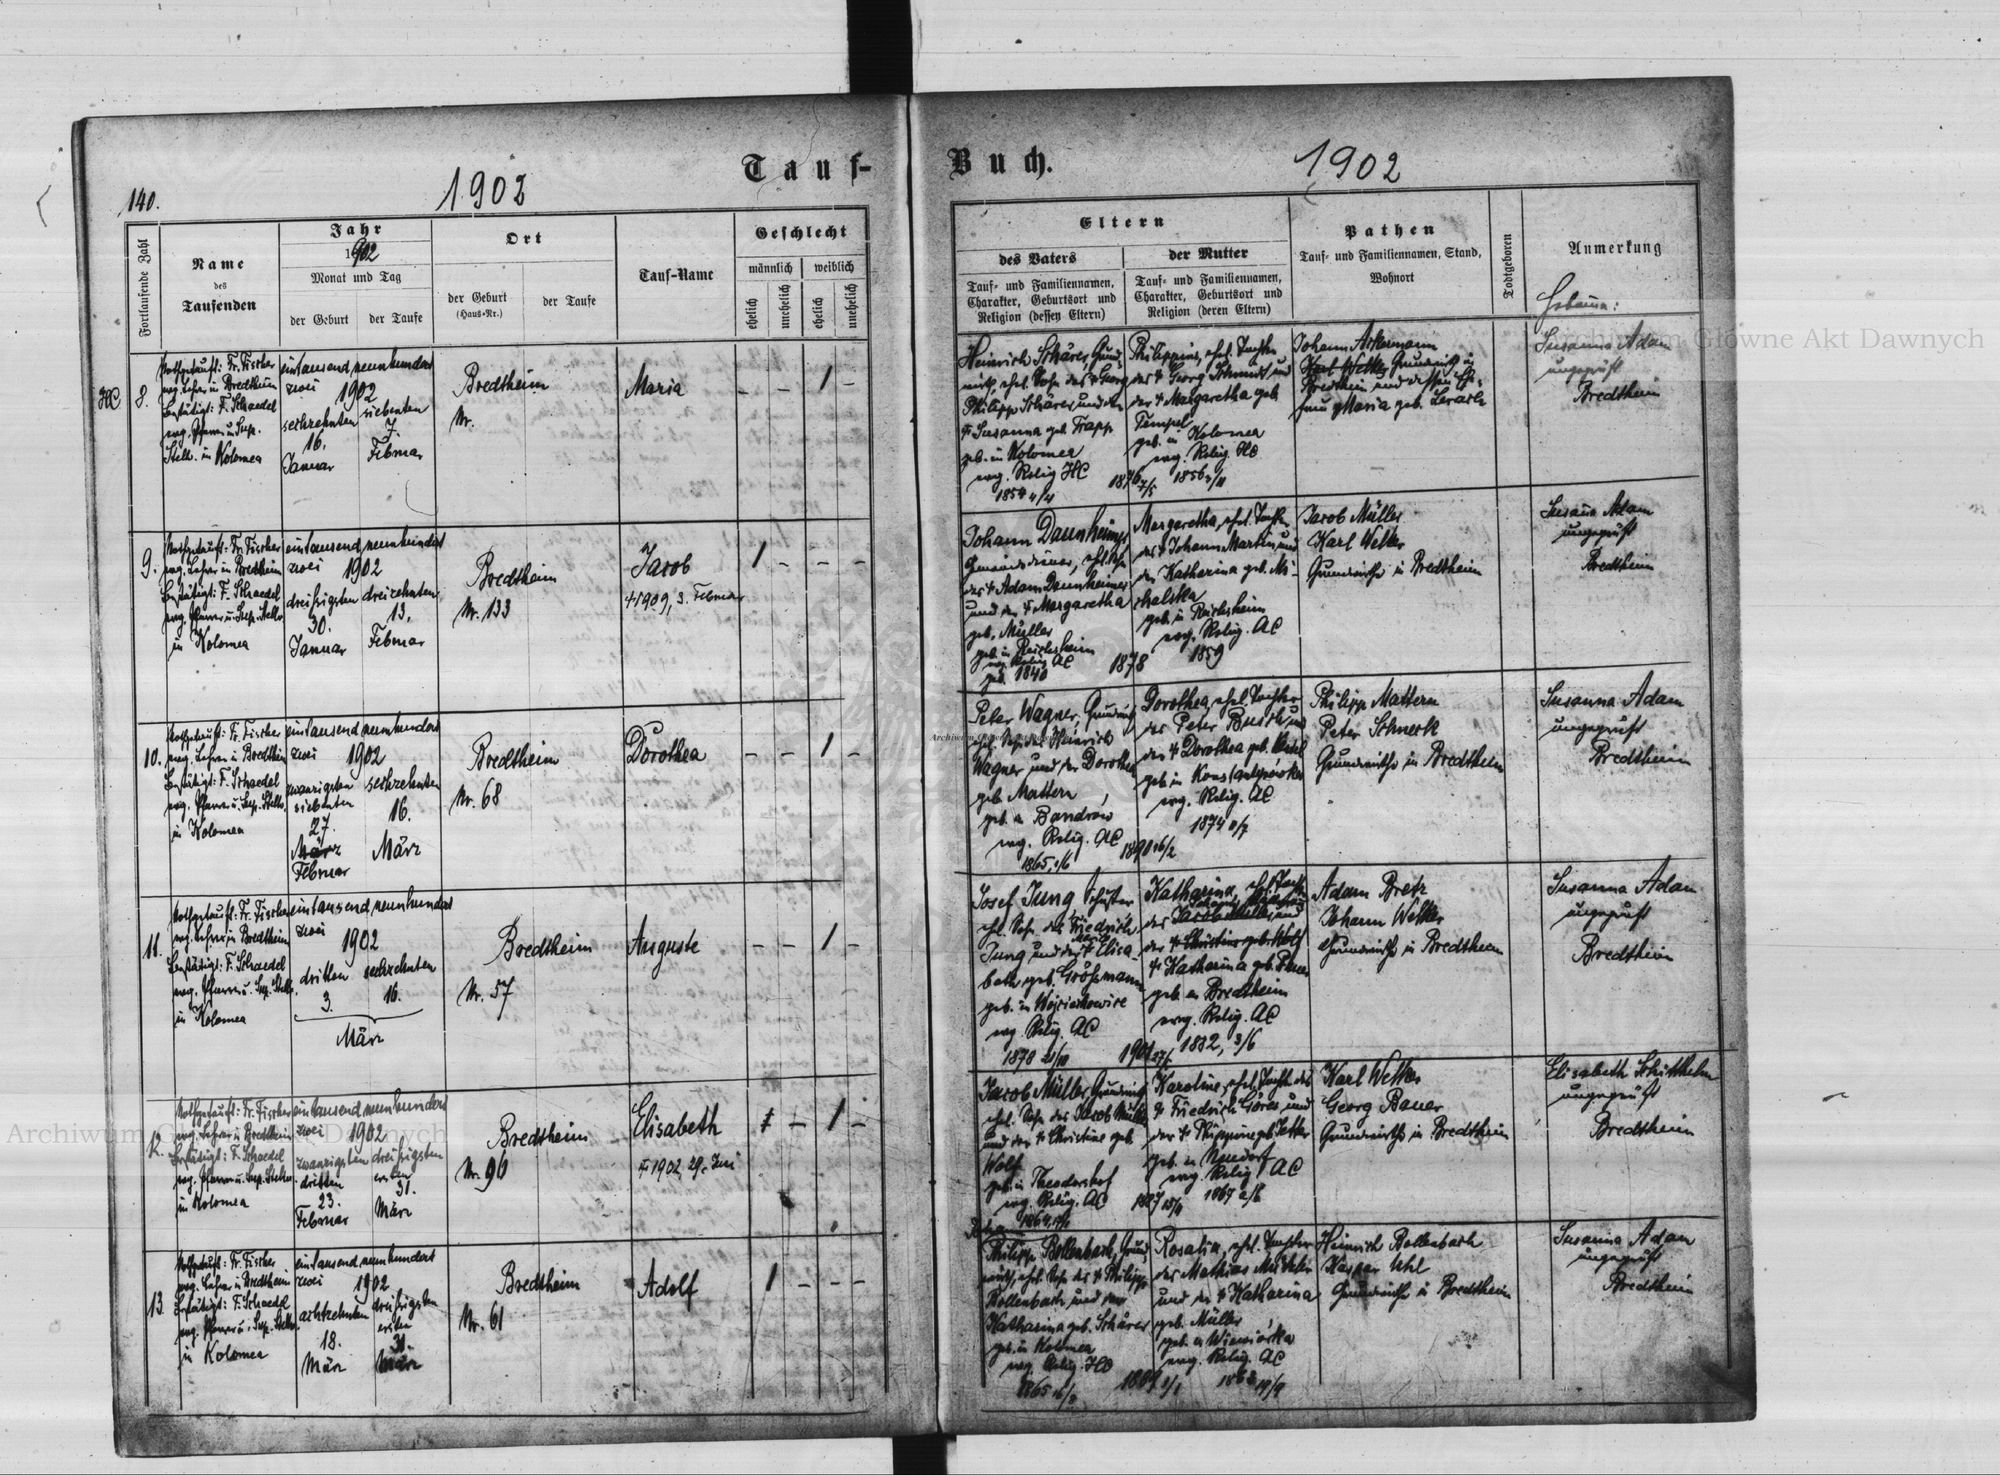 140.
1902
Tauf-
Fortlaufende Zahl
Name
des
Taufenden
Jahr
1902
Monat und Tag
der Geburt
der Taufe
Ort
der Geburt
(Haus-Nr.)
der Taufe
Tauf-Name
Geschlecht
männlich
weiblich
ehelich
unehelich
ehelich
unehelich
HC
8.
Nothgetauft: Fr. Fischer
evg. Lehrer in Bredtheim
Bestätigt: F. Schaedel
evg. Pfarrer u. Sup.
Stellv. in Kolomea
eintausend neunhundert
zwei 1902
sechzehnten
16.
Januar
siebenten
7.
Februar
Bredtheim
Nr.
Maria
- - 1 -
9.
Nothgetauft: Fr. Fischer
evg. Lehrer in Bredtheim
Bestätigt: F. Schaedel
evg. Pfarrer u. Sup. Stellv.
in Kolomea
eintausend neunhundert
zwei 1902
dreißigsten
30.
Januar
dreizehnten
13.
Februar
Bredtheim
Nr. 133
Jacob
† 1909, 3. Februar
1 - - -
10.
Nothgetauft: Fr. Fischer
evg. Lehrer in Bredtheim
Bestätigt: F. Schaedel
evg. Pfarrer u. Sup. Stellv.
in Kolomea
eintausend neunhundert
zwei 1902
zwanzigsten
siebenten
27.
März
Februar
sechzehnten
16.
März
Bredtheim
Nr. 68
Dorothea
- - 1 -
11.
Nothgetauft: Fr. Fischer
evg. Lehrer in Bredtheim
Bestätigt: F. Schaedel
evg. Pfarrer u. Sup. Stellv.
in Kolomea
eintausend neunhundert
zwei 1902
dritten
3.
sechzehnten
16.
März
Bredtheim
Nr. 57
Auguste
- - 1 -
12.
Nothgetauft: Fr. Fischer
evg. Lehrer in Bredtheim
Bestätigt: F. Schaedel
evg. Pfarrer u. Sup. Stellv.
in Kolomea
eintausend neunhundert
zwei 1902
zwanzigsten
dritten
23.
Februar
dreißigsten
ersten
31.
März
Bredtheim
Nr. 96
Elisabeth
† 1902, 29. Juni
- 1 -
13.
Nothgetauft: Fr. Fischer
evg. Lehrer in Bredtheim
Bestätigt: F. Schaedel
evg. Pfarrer u. Sup. Stellv.
in Kolomea
eintausend neunhundert
zwei 1902
achtzehnten
18.
März
dreißigsten
ersten
31.
März
Bredtheim
Nr. 61
Adolf
1 - - -
Buch.
1902
Eltern
des Vaters
Tauf- und Familiennamen,
Charakter, Geburtsort und
Religion (dessen Eltern)
der Mutter
Tauf- und Familiennamen,
Charakter, Geburtsort und
Religion (deren Eltern)
Pathen
Tauf- und Familiennamen, Stand,
Wohnort
Todtgeboren
Anmerkung
Hebamme:
Heinrich Schärer, Grund-
wirth, ehel. Sohn des † Georg
Philipp Schärer und der
† Susanna geb. Trapp
geb. in Kolomea
evg. Relig. HC
1854 4/4
Philippine, ehel. Tochter
des † Georg Schmidt und
der † Margaretha geb.
Tempel
geb. in Kolomea
evg. Relig. HC
1876 7/5
Johann Ackermann
Karl Welker Grundwirth in
Bredtheim und dessen Ehe-
frau Maria geb.
Susanna Adam
ungeprüft
Bredtheim
Johann Daunheimer
Gemeindediener, ehel. Sohn
des † Adam Daunheimer
und der † Margaretha
geb. Müller
geb. in Reichsheim
evg. Relig. AC
geb. 1840
Margaretha, ehel. Tochter
des † Johann Martin und
der Katharina geb. Mi-
chalska
geb. in Reichsheim
evg. Relig. AC
1878 1859
Jacob Müller
Karl Welker
Grundwirthe in Bredtheim
Susanna Adam
ungeprüft
Bredtheim
Peter Wagner, Grundwirth
ehel. Sohn des Heinrich
Wagner und der Dorothea
geb. Mattern
geb. in Bandrów
evg. Relig. AC
Dorothea, ehel. Tochter
des Peter Busch und
der † Dorothea geb.
geb. in Konstantynówka
evg. Relig. AC
Philipp Mattern
Peter Schneck
Grundwirthe in Bredtheim
Susanna Adam
ungeprüft
Bredtheim
Josef Jung Schuster
ehel. Sohn des Friedrich
Jung und der † Elisa-
beth geb. Größmann
geb. in
evg. Relig. AC
Katharina, ehel. Tochter
des Jacob Müller und
der † Christine geb. Wolf
† Katharina geb.
geb. in Bredtheim
evg. Relig. AC
1882, 3/6
Adam Bretz
Johann Welker
Grundwirthe in Bredtheim
Susanna Adam
ungeprüft
Bredtheim
Jacob Müller, Grundwirth
ehel. Sohn des Jacob Müller
und der † Christine geb.
Wolf
geb. in Theodorshof
evg. Relig. AC
Karoline, ehel. Tochter des
† Friedrich Göres und
der † Philippine geb. Jetter
geb. in Neudorf
evg. Relig. AC
Karl Welker
Georg Bauer
Grundwirthe in Bredtheim
Elisabeth Schitthelm
ungeprüft
Bredtheim
Philipp Bollenbach, Grund-
wirth, ehel. Sohn des † Philipp
Bollenbach und der
Katharina geb. Schärer
geb. in Kolomea
evg. Relig. HC
Rosalia, ehel. Tochter
des Mathias
und der † Katharina
geb. Müller
geb. in Wiesiorka
evg. Relig. AC
Heinrich Bollenbach
Kaspar Uhl
Grundwirthe in Bredtheim
Susanna Adam
ungeprüft
Bredtheim
Archiwum Główne Akt Dawnych
Archiwum Główne Akt Dawnych